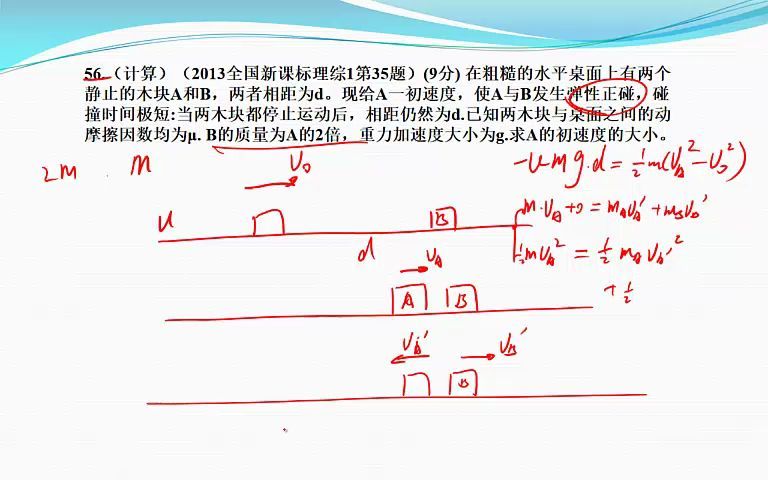 56.（计算）（2013全国新课标理综1第35题）(9分) 在粗糙的水平桌面上有两个
静止的木块A和B，两者相距为d。现给A一初速度，使A与B发生弹性正碰，碰
撞时间极短:当两木块都停止运动后，相距仍然为d.已知两木块与桌面之间的动
摩擦因数均为μ. B的质量为A的2倍，重力加速度大小为g.求A的初速度的大小。
2M . M
V₀
-μmg·d=½m(V_A²-V₀²)
m·V_A+0=m_AV_A'+m_BV_B'
½mV_A²=½m_AV_A'²
+½
u
B
d
V_A
A B
V_A' V_B'
B